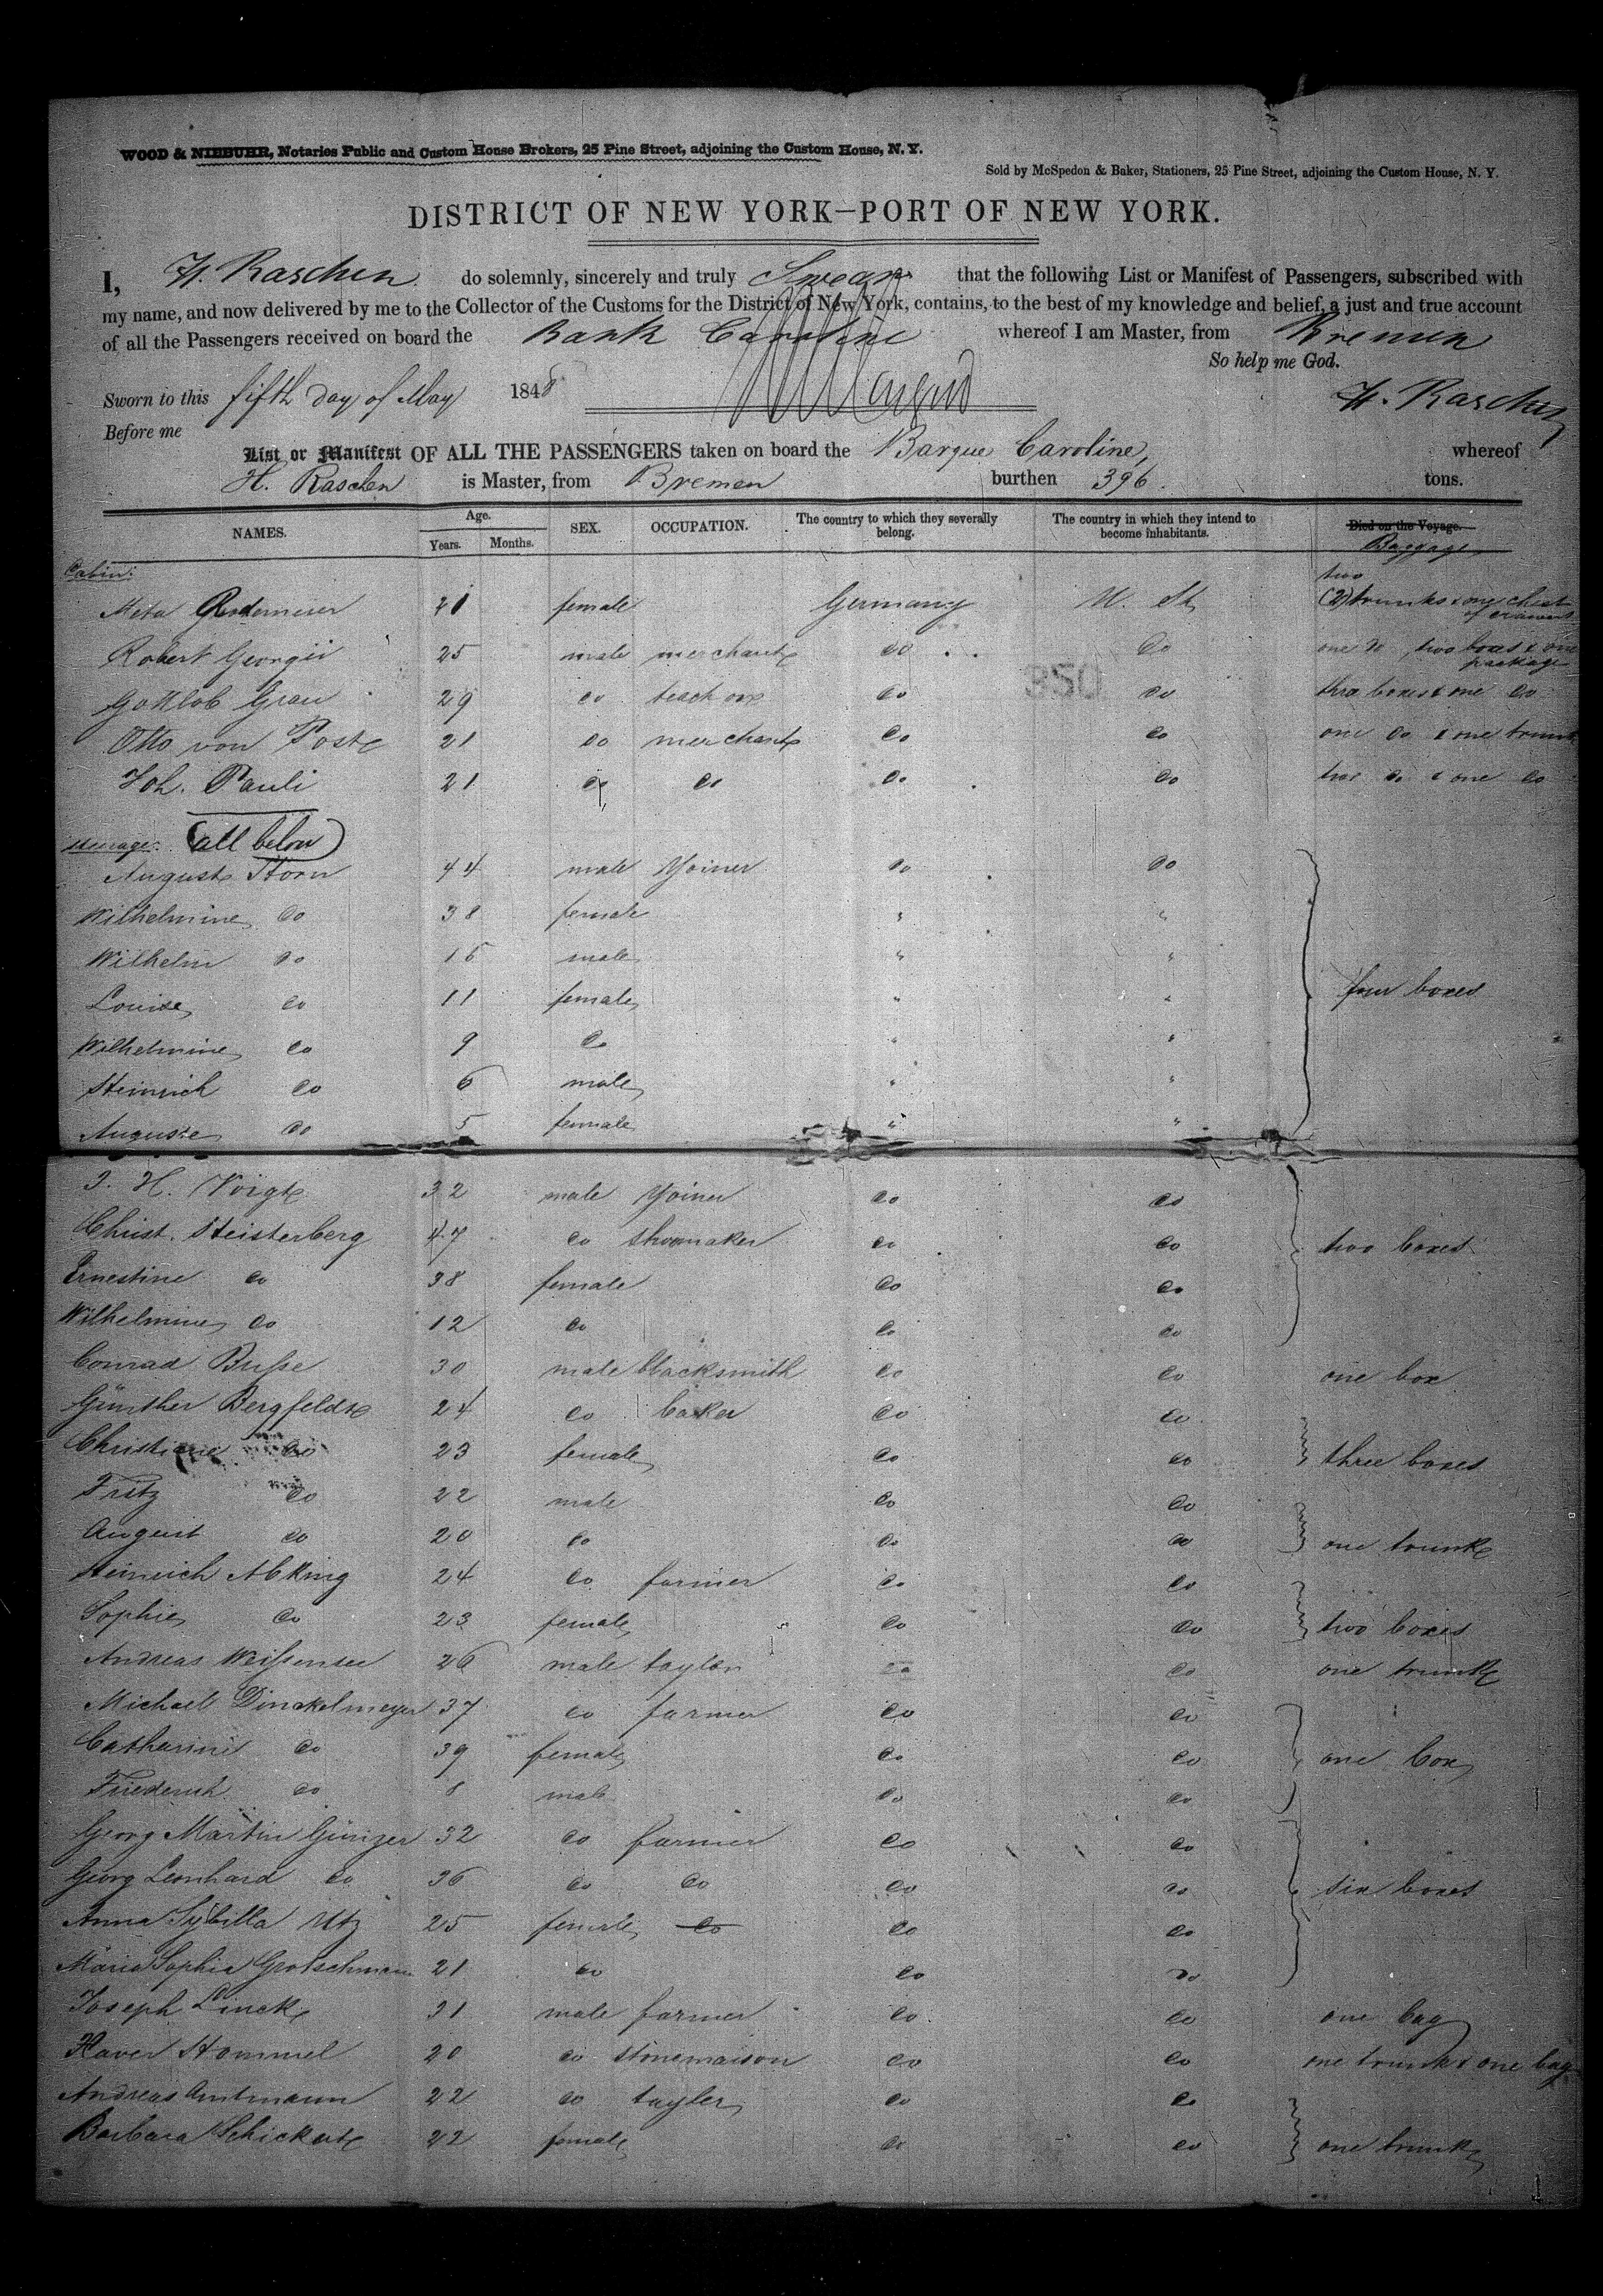 WOOD & NIEBUHR, Notaries Public and Custom House Brokers, 25 Pine Street, adjoining the Custom House, N. Y.
Sold by McSpedon & Baker, Stationers, 25 Pine Street, adjoining the Custom House, N. Y.
DISTRICT OF NEW YORK—PORT OF NEW YORK.
I, H. Raschen do solemnly, sincerely and truly Swear that the following List or Manifest of Passengers, subscribed with
my name, and now delivered by me to the Collector of the Customs for the District of New York, contains, to the best of my knowledge and belief, a just and true account
of all the Passengers received on board the Bark Caroline whereof I am Master, from Bremen
So help me God.
Sworn to this fifth day of May 1848 H. Raschen
Before me
List or Manifest OF ALL THE PASSENGERS taken on board the Barque Caroline, whereof
H. Raschen is Master, from Bremen burthen 396. tons.
NAMES. Age. Years. Months. SEX. OCCUPATION. The country to which they severally belong. The country in which they intend to become inhabitants. Died on the Voyage. Baggage
Cabin: two
Meta 21 female Germany U. St. (2) trunks & one chest of drawers
Robert Georgii 25 male merchant do do one do two boxes & one package
350
Gottlob Grau 29 do do do three boxes & one do
Otto von Post 21 do merchant do do one do & one trunk
Joh. Pauli 21 do do do do two do & one do
steerage: (all below)
August Horn 44 male Yoiner do do
Wilhelmine do 38 female " "
Wilhelm do 15 male " "
Louise do 11 female " " four boxes
Wilhelmine do 9 do " "
Heinrich do 6 male " "
Auguste do 5 female " "
J. H. Voigt 32 male Yoiner do do
Christ. Heisterberg 47 do shoemaker do do two boxes
Ernestine do 38 female do do
Wilhelmine do 12 do do do
Conrad Buße 30 male blacksmith do do one box
Günther Bergfeldt 24 do baker do do
Christiane do 23 female do do three boxes
Fritz do 22 male do do
August do 20 do do do one trunk
Heinrich Abking 24 do farmer do do
Sophie do 23 female do do two boxes
Andreas Weißensee 26 male taylor do do one trunk
Michael Dinckelmeyer 37 do farmer do do
Catharine do 39 female do do one box
Friederich do 8 male do do
Georg Martin 32 do farmer do do
Georg Leonhard do 36 do do do do six boxes
Anna Sybilla Utz 25 female do do do
Maria Sophia Grotschmann 21 do do do
Joseph Linck 31 male farmer do do one bag
Xaver Hommel 20 do stonemaison do do one trunk & one bag
Andreas Amtmann 22 do tayler do do
Barbara Schickert 22 female do do one trunk